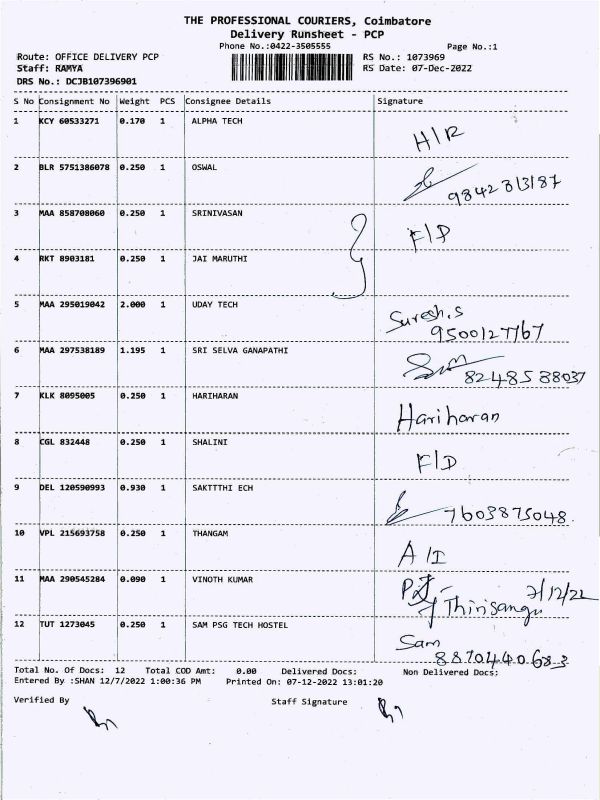 THE PROFESSIONAL COURIERS, Coimbatore
Delivery Runsheet - PCP
Phone No.:0422-3505555
Page No.:1
Route: OFFICE DELIVERY PCP
RS No.: 1073969
Staff: RAMYA
RS Date: 07-Dec-2022
DRS No.: DCJB107396901
S No Consignment No Weight PCS Consignee Details Signature
1 KCY 60533271 0.170 1 ALPHA TECH
H/R
2 BLR 5751386078 0.250 1 OSWAL
9842313187
3 MAA 858708060 0.250 1 SRINIVASAN
F/D
4 RKT 8903181 0.250 1 JAI MARUTHI
5 MAA 295019042 2.000 1 UDAY TECH
Suresh.S
9500127767
6 MAA 297538189 1.195 1 SRI SELVA GANAPATHI
8248588037
7 KLK 8095005 0.250 1 HARIHARAN
Hariharan
8 CGL 832448 0.250 1 SHALINI
F/D
9 DEL 120590993 0.930 1 SAKTTTHI ECH
7603875048
10 VPL 215693758 0.250 1 THANGAM
A/I
11 MAA 290545284 0.090 1 VINOTH KUMAR
7/12/22
Thirisangu
12 TUT 1273045 0.250 1 SAM PSG TECH HOSTEL
Sam
8870440683
Total No. Of Docs: 12 Total COD Amt: 0.00 Delivered Docs: Non Delivered Docs:
Entered By :SHAN 12/7/2022 1:00:36 PM Printed On: 07-12-2022 13:01:20
Verified By Staff Signature